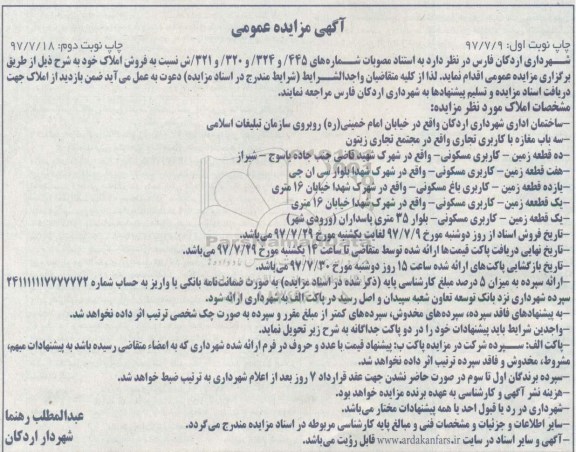 آگهی مزایده عمومی
چاپ نوبت اول: ۹۷/۷/۹
چاپ نوبت دوم: ۹۷/۷/۱۸
شهرداری اردکان فارس در نظر دارد به استناد مصوبات شماره‌های ۴۴۵/ و ۳۲۴/ و ۳۲۰/ و ۳۲۱/ش نسبت به فروش املاک خود به شرح ذیل از طریق
برگزاری مزایده عمومی اقدام نماید. لذا از کلیه متقاضیان واجدالشرایط (شرایط مندرج در اسناد مزایده) دعوت به عمل می‌آید ضمن بازدید از املاک جهت
دریافت اسناد مزایده و تسلیم پیشنهادها به شهرداری اردکان فارس مراجعه نمایند.
مشخصات املاک مورد نظر مزایده:
–ساختمان اداری شهرداری اردکان واقع در خیابان امام خمینی(ره) روبروی سازمان تبلیغات اسلامی
–سه باب مغازه با کاربری تجاری واقع در مجتمع تجاری زیتون
–ده قطعه زمین – کاربری مسکونی– واقع در شهرک شهید قاضی جنب جاده یاسوج – شیراز
–هفت قطعه زمین– کاربری مسکونی– واقع در شهرک شهدا بلوار سی ان جی
–یازده قطعه زمین – کاربری باغ مسکونی– واقع در شهرک شهدا خیابان ۱۶ متری
–یک قطعه زمین– کاربری مسکونی– واقع در شهرک شهدا خیابان ۱۶ متری
–یک قطعه زمین– کاربری مسکونی– بلوار ۳۵ متری پاسداران (ورودی شهر)
–تاریخ فروش اسناد از روز دوشنبه مورخ ۹۷/۷/۹ لغایت یکشنبه مورخ ۹۷/۷/۲۹ می‌باشد.
–تاریخ نهایی دریافت پاکت قیمت‌ها ارائه شده توسط متقاضی تا ساعت ۱۴ یکشنبه مورخ ۹۷/۷/۲۹ می‌باشد.
–تاریخ بازگشایی پاکت‌های ارائه شده ساعت ۱۵ روز دوشنبه مورخ ۹۷/۷/۳۰ می‌باشد.
–ارائه سپرده به میزان ۵ درصد مبلغ کارشناسی پایه (ذکر شده در اسناد مزایده) به صورت ضمانت‌نامه بانکی یا واریز به حساب شماره
سپرده شهرداری نزد بانک توسعه تعاون شعبه سپیدان و اصل رسید در پاکت الف به شهرداری ارائه شود.
–به پیشنهادهای فاقد سپرده، سپرده‌های مخدوش، سپرده‌های کمتر از مبلغ مقرر و سپرده به صورت چک شخصی ترتیب اثر داده نخواهد شد.
–واجدین شرایط باید پیشنهادات خود را در دو پاکت جداگانه به شرح زیر تحویل نماید.
–پاکت الف: سپرده شرکت در مزایده پاکت ب: پیشنهاد قیمت با عدد و حروف در فرم ارائه شده شهرداری که به امضاء متقاضی رسیده باشد به پیشنهادات مبهم،
مشروط، مخدوش و فاقد سپرده ترتیب اثر داده نخواهد شد.
–سپرده برندگان اول تا سوم در صورت حاضر نشدن جهت عقد قرارداد ۷ روز بعد از اعلام شهرداری به ترتیب ضبط خواهد شد.
–هزینه نشر آگهی و کارشناسی به عهده برنده مزایده خواهد بود.
–شهرداری در رد یا قبول احد یا همه پیشنهادات مختار می‌باشد.
–سایر اطلاعات و جزئیات و مشخصات فنی و مبالغ پایه کارشناسی مربوطه در اسناد مزایده مندرج می‌گردد.
–آگهی و سایر اسناد در سایت www.ardakanfars.ir قابل رؤیت می‌باشد.
عبدالمطلب رهنما
شهردار اردکان